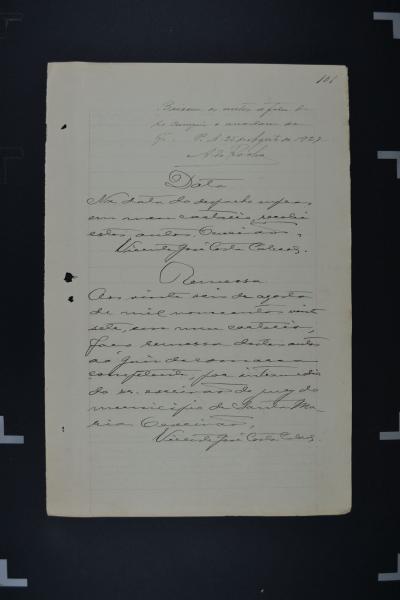 101
Baixem os autos a fim de
P. A. 26 de Agosto de 1927
Data
Na data do despacho supra,
em meu cartorio, recebi
estes autos. Escrivão,
Vicente José Costa Cabral.
Remessa
Aos vinte seis de agosto
de mil novecentos vinte
sete, em meu cartorio,
faço remessa destes autos
ao Juiz da comarca
competente, por intermedio
do sr. escrivão do jury do
municipio de Santa Ma-
ria. Escrivão,
Vicente José Costa Cabral